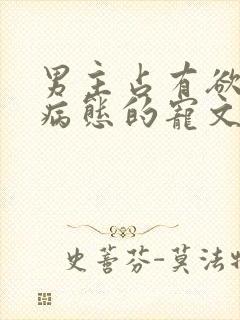 男主占有欲
病态的宠文
史蒈芬-莫法特